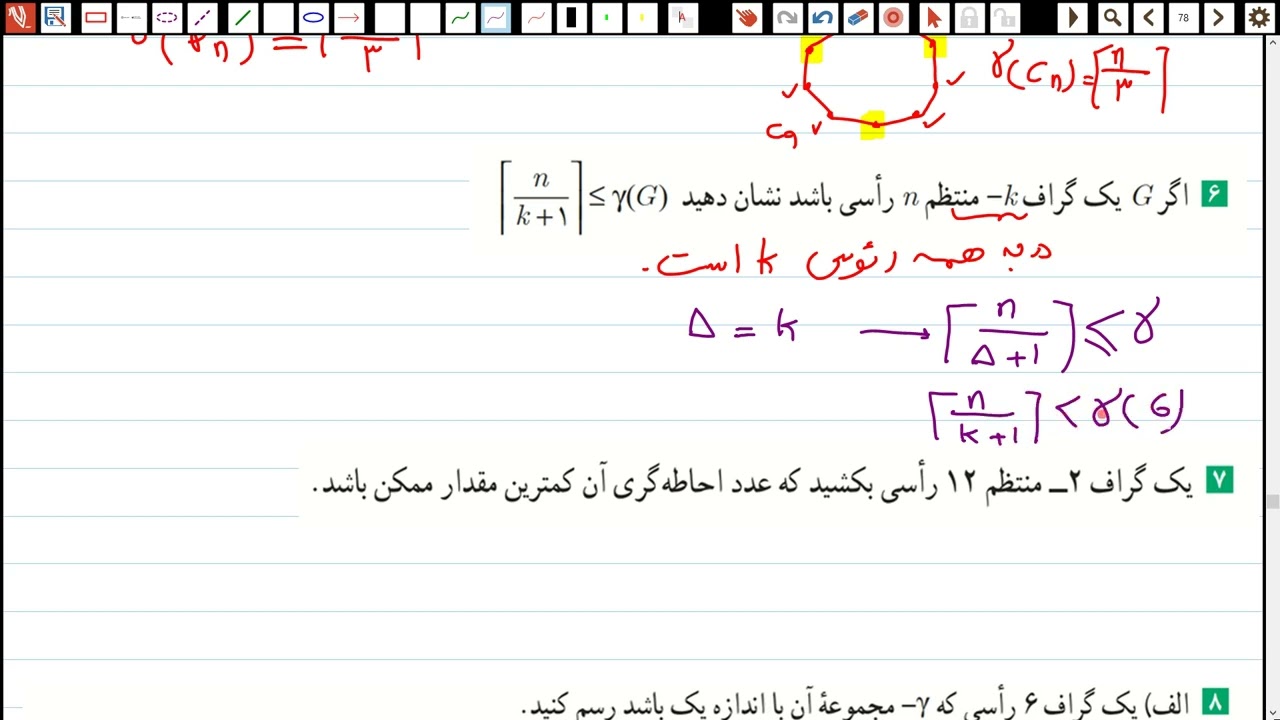 78
γ(Cn) = ⌈n/۳⌉
C۹
۶ اگر G یک گراف k– منتظم n رأسی باشد نشان دهید ⌈n/(k+۱)⌉ ≤ γ(G)
درجه همه رئوس k است.
Δ = k → ⌈n/(Δ+1)⌉ ≤ γ
⌈n/(k+1)⌉ < γ(G)
۷ یک گراف ۲ــ منتظم ۱۲ رأسی بکشید که عدد احاطه‌گری آن کمترین مقدار ممکن باشد.
۸ الف) یک گراف ۶ رأسی که γ– مجموعهٔ آن با اندازه یک باشد رسم کنید.